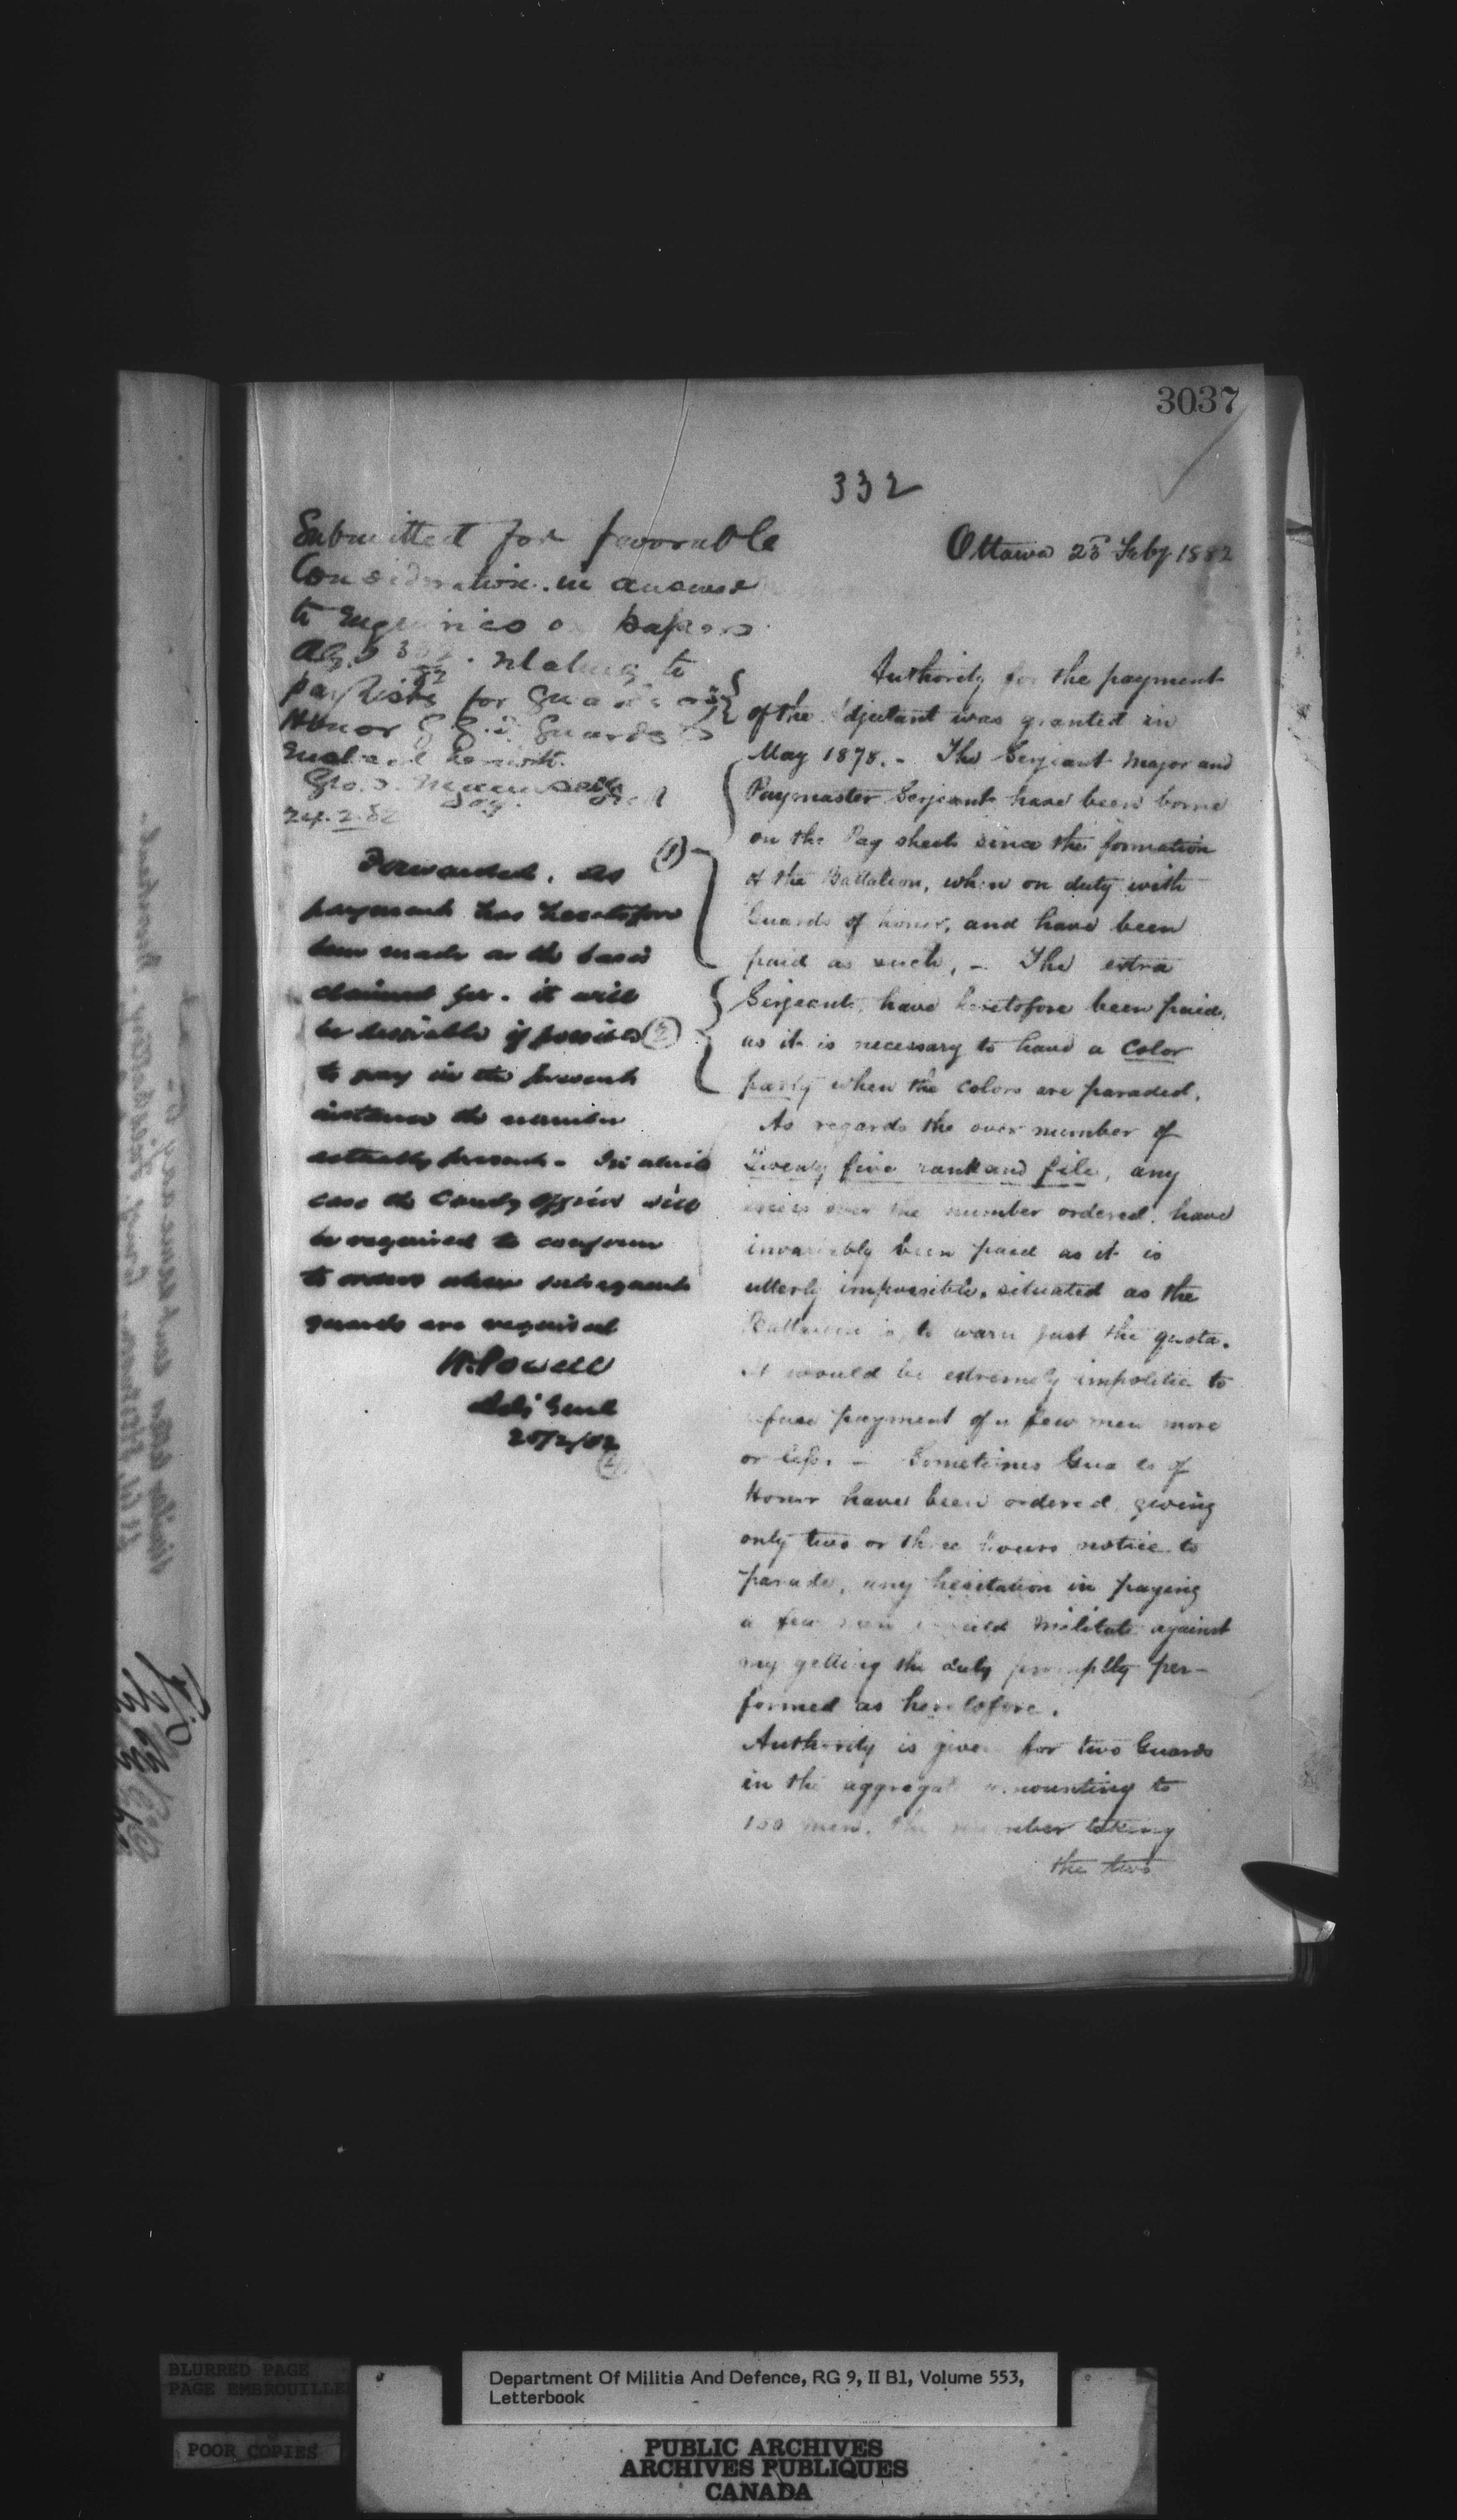 3037
332
Submitted for favorable
Consideration. in answer
to enquiries on papers
relating to
pay lists for Guards of
Honor G. G. F. Guards
24.2.82
Forwarded. As
payment has heretofore
been made on the basis
claimed for. it will
be desirable if possible
to pay in the present
instance the number
actually present. In which
case the Comdg Officer will
be required to conform
to orders when subsequent
guards are required
W. Powell
Adj Genl
(1)
(2)
Ottawa 23d Feby 1882
Authority for the payment
of the Adjutant was granted in
May 1878. - The Serjeant Major and
Paymaster Serjeant have been borne
on the Pay sheets since the formation
of the Battalion, when on duty with
Guards of honor, and have been
paid as such, - The extra
Serjeants, have heretofore been paid,
as it is necessary to have a Color
party when the Colors are paraded.
As regards the over number of
Twenty five rank and file, any
excess over the number ordered, have
invariably been paid as it is
utterly impossible, situated as the
Battalion is, to warn just the quota.
It would be extremely impolitic to
refuse payment of a few men more
or less. - Sometimes Guards of
Honor have been ordered, giving
only two or three hours notice to
parade, any hesitation in paying
a few men would militate against
my getting the duty promptly per-
formed as heretofore.
Authority is given for two Guards
in the aggregate amounting to
100 men. The number taking
the two
BLURRED PAGE
PAGE EMBROUILLEE
POOR COPIES
Department Of Militia And Defence, RG 9, II B1, Volume 553,
Letterbook
PUBLIC ARCHIVES
ARCHIVES PUBLIQUES
CANADA